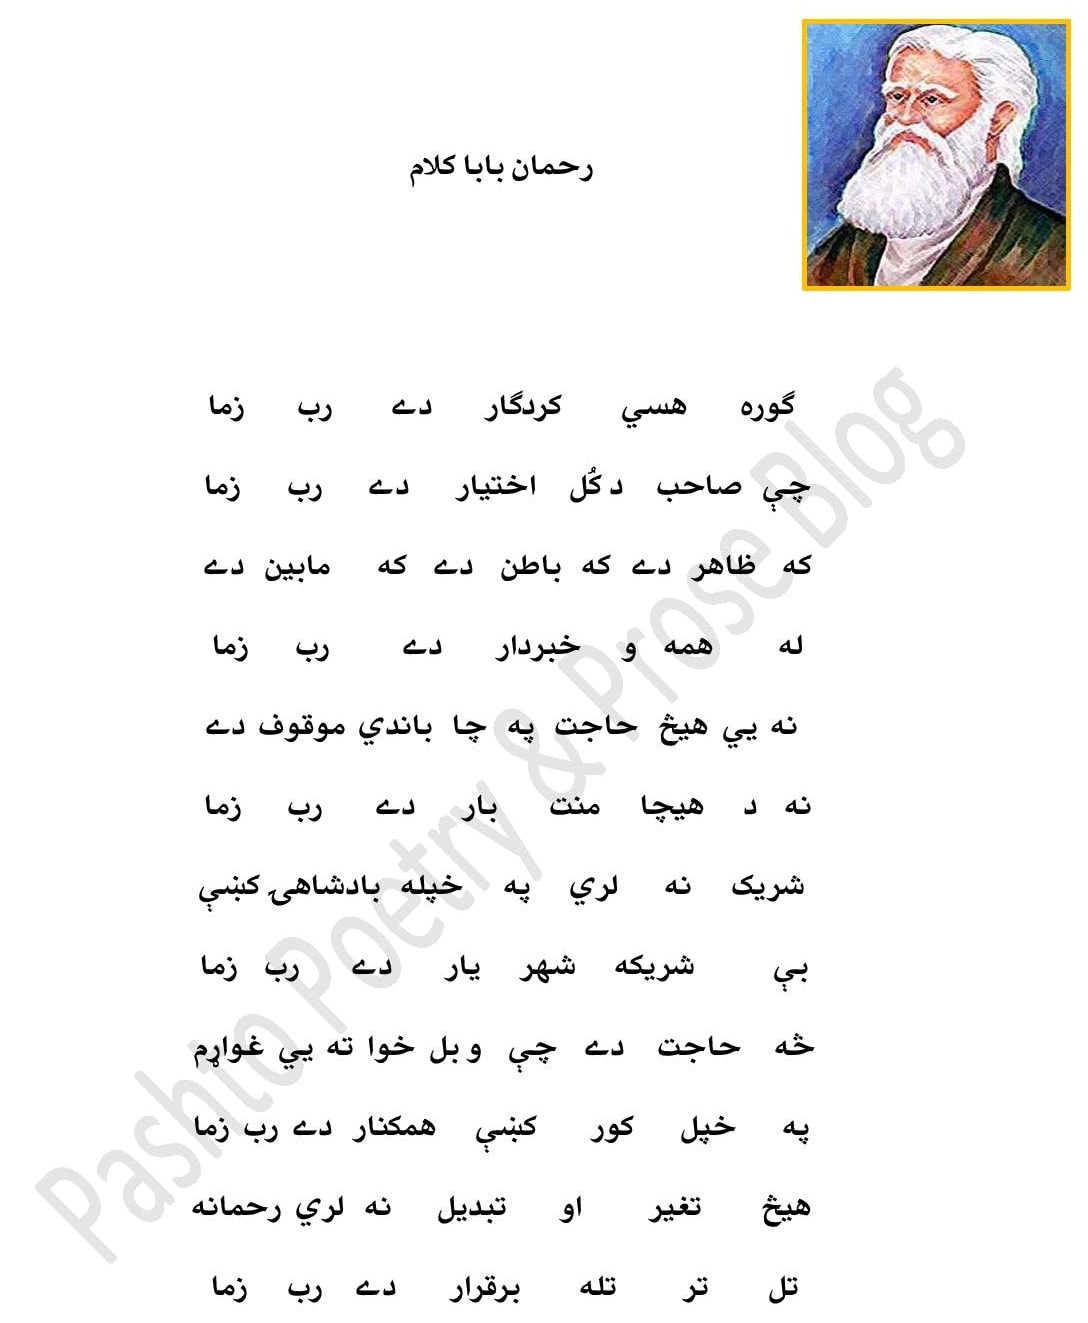 رحمان بابا کلام
گوره هسي کردگار دے رب زما
چې صاحب د کُل اختیار دے رب زما
که ظاهر دے که باطن دے که مابین دے
له همه و خبردار دے رب زما
نه یي هیڅ حاجت په چا باندي موقوف دے
نه د هیچا منت بار دے رب زما
شریک نه لري په خپله بادشاهۍ کښې
بې شریکه شهر یار دے رب زما
څه حاجت دے چې و بل خوا ته یي غواړم
په خپل کور کښې همکنار دے رب زما
هیڅ تغیر او تبدیل نه لري رحمانه
تل تر تله برقرار دے رب زما
Pashto Poetry & Prose Blog